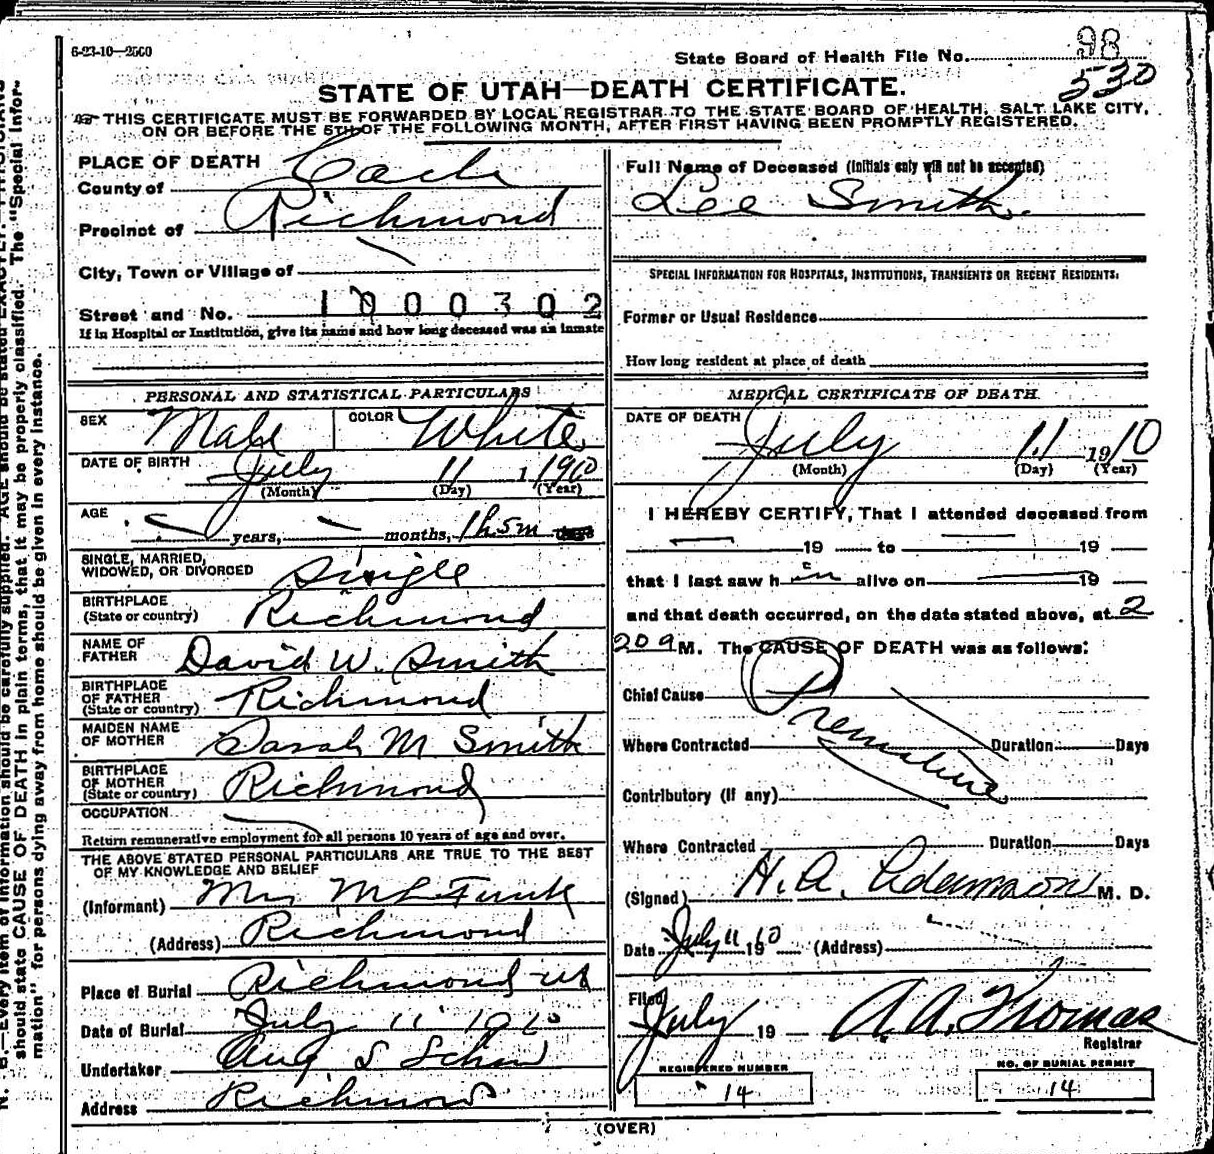 6-23-10—2500
State Board of Health File No. 98
530
STATE OF UTAH—DEATH CERTIFICATE.
THIS CERTIFICATE MUST BE FORWARDED BY LOCAL REGISTRAR TO THE STATE BOARD OF HEALTH, SALT LAKE CITY,
ON OR BEFORE THE 5TH OF THE FOLLOWING MONTH, AFTER FIRST HAVING BEEN PROMPTLY REGISTERED.
PLACE OF DEATH
County of Cache
Precinct of Richmond
City, Town or Village of
Street and No. 1000302
If in Hospital or Institution, give its name and how long deceased was an inmate
Full Name of Deceased (Initials only will not be accepted)
Lee Smith.
SPECIAL INFORMATION FOR HOSPITALS, INSTITUTIONS, TRANSIENTS OR RECENT RESIDENTS:
Former or Usual Residence
How long resident at place of death
PERSONAL AND STATISTICAL PARTICULARS
SEX Male COLOR White
DATE OF BIRTH July 11 1910
(Month) (Day) (Year)
AGE
years, months, 1h 5m
SINGLE, MARRIED,
WIDOWED, OR DIVORCED Single
BIRTHPLACE
(State or country) Richmond
NAME OF
FATHER David W. Smith
BIRTHPLACE
OF FATHER
(State or country) Richmond
MAIDEN NAME
OF MOTHER Sarah M Smith
BIRTHPLACE
OF MOTHER
(State or country) Richmond
OCCUPATION
Return remunerative employment for all persons 10 years of age and over.
THE ABOVE STATED PERSONAL PARTICULARS ARE TRUE TO THE BEST
OF MY KNOWLEDGE AND BELIEF
(Informant) Mrs M L Funk
(Address) Richmond
Place of Burial Richmond Ut
Date of Burial July 11 1910
Undertaker Aug S Schow
Address Richmond
MEDICAL CERTIFICATE OF DEATH.
DATE OF DEATH
July 11 1910
(Month) (Day) (Year)
I HEREBY CERTIFY, That I attended deceased from
19 to 19
that I last saw him alive on 19
and that death occurred, on the date stated above, at 2
20 a M. The CAUSE OF DEATH was as follows:
Chief Cause Premature
Where Contracted Duration Days
Contributory (if any)
Where Contracted Duration Days
(Signed) H. A. Adamson M. D.
Date July 11 1910 (Address)
Filed
July 19 A. A. Thomas
Registrar
REGISTERED NUMBER
14
NO. OF BURIAL PERMIT
14
(OVER)
should state CAUSE OF DEATH in plain terms, that it may be properly classified. The "Special Infor-
mation" for persons dying away from home should be given in every instance.